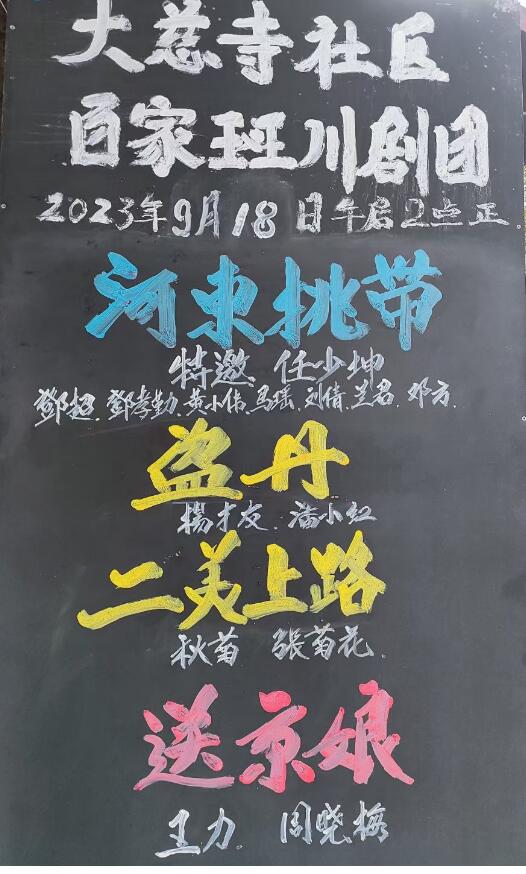 大慈寺社区
百家班川剧团
2023年9月18日午后2点正
河东挑带
特邀 任少坤
鄧超.鄧孝勤.黄小伟.马瑶.刘倩.兰君.邓方.
盗丹
楊才友.潘小红
二美上路
秋菊 張菊花.
送京娘
王力.周晓梅